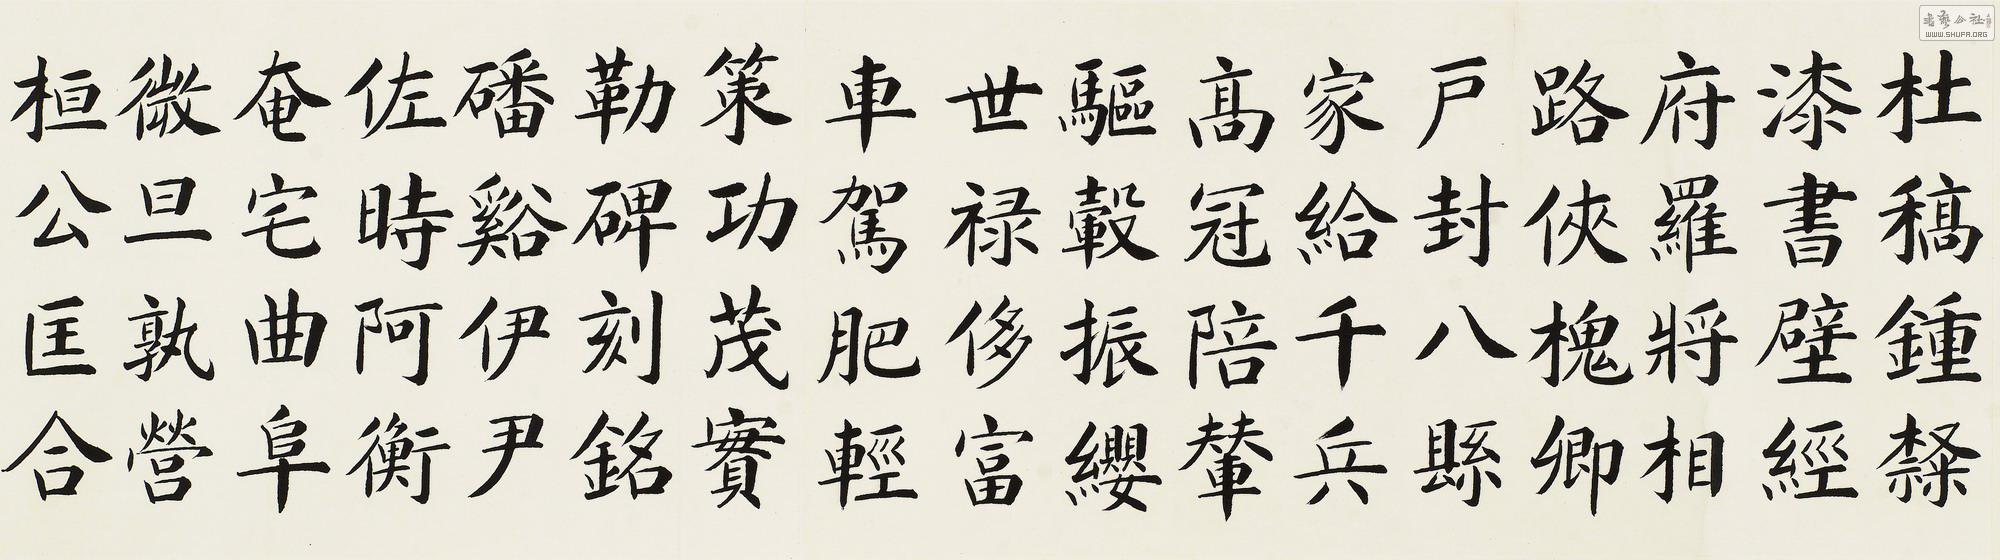 杜稿鍾隸
漆書壁經
府羅將相
路俠槐卿
戶封八縣
家給千兵
髙冠陪輦
驅轂振纓
世禄侈富
車駕肥輕
策功茂實
勒碑刻銘
磻谿伊尹
佐時阿衡
奄宅曲阜
微旦孰營
桓公匡合
书艺公社
WWW.SHUFA.ORG